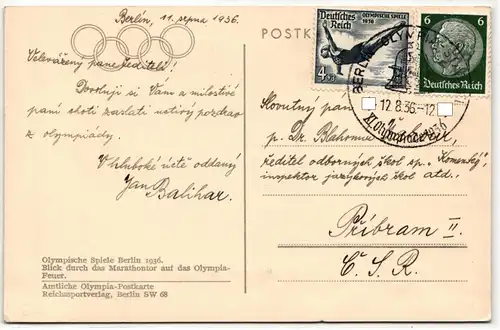 Berlín, 11. srpna 1936.
Velevážený pane řediteli!
Dovoluji si Vám a milostivé
paní slotí zaslati uctivý pozdrav
z olympiády.
V hluboké úctě oddaný
Jan Balihar.
Olympische Spiele Berlin 1936.
Blick durch das Marathontor auf das Olympia-
Feuer.
Amtliche Olympia-Postkarte
Reichssportverlag, Berlin SW 68
POSTK
Deutsches Reich
OLYMPISCHE SPIELE
1936
4
6 6
Deutsches Reich
BERLIN OLYMP
12.8.36-12
XI. Olympiade 1936
Slovutný pan
p. Dr. Blahomír
ředitel odborných škol sp. „Komenský",
inspektor jazykových škol atd.
Příbram II.
Č. S. R.